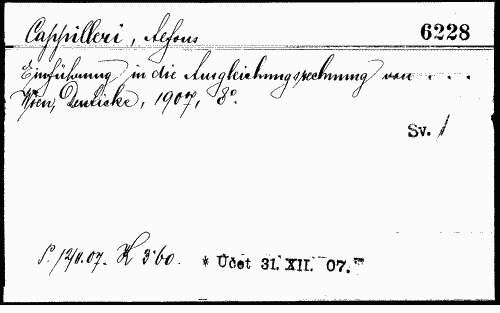 Cappilleri, Alfons 6228
Einführung in die Ausgleichungsrechnung von . . .
Wien, Deuticke, 1907, 8°.
Sv. 1
K 3·60. * Účet 31. XII. 07.